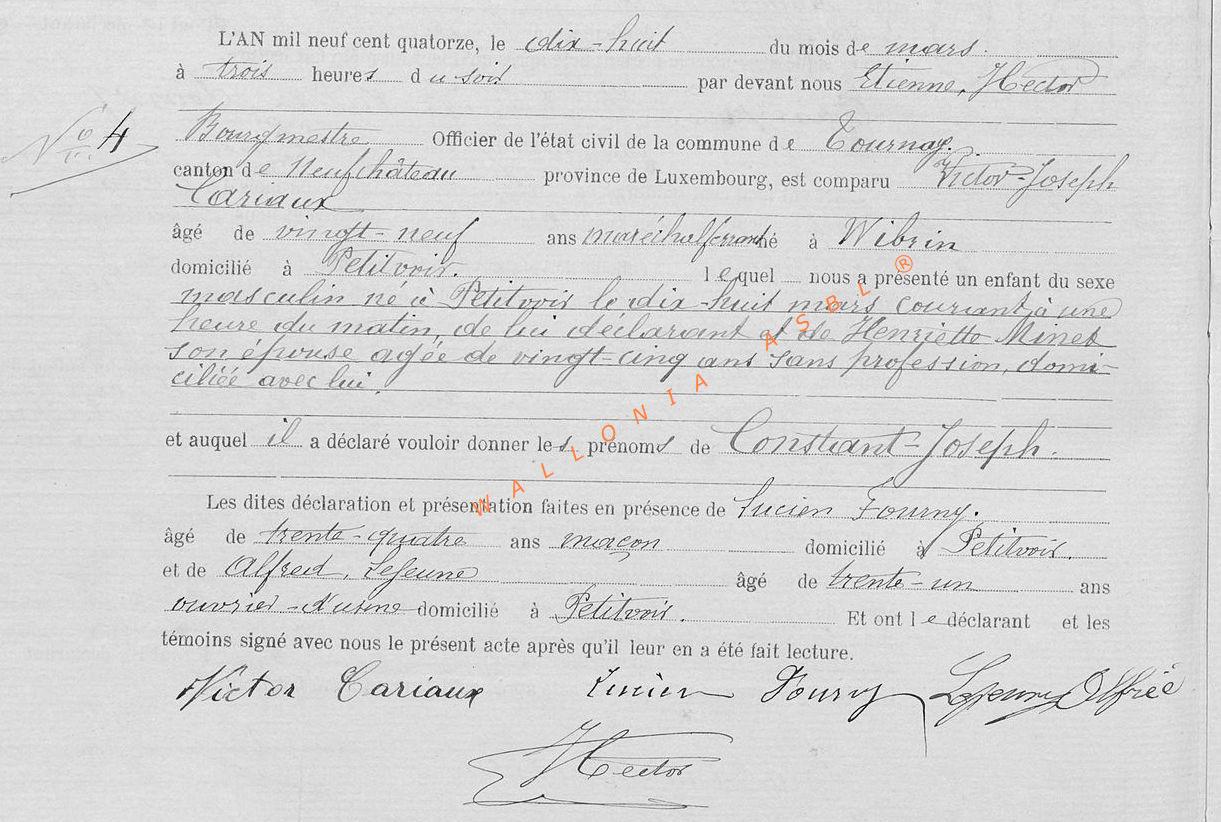 L'AN mil neuf cent quatorze, le dix-huit du mois de mars.
à trois heures du soir par devant nous Etienne, Hector
No 4
Bourgmestre Officier de l'état civil de la commune de Tournay.
canton de Neufchâteau province de Luxembourg, est comparu Victor-Joseph
Cariaux
âgé de vingt-neuf ans maréchal ferrant né à Wibrin
domicilié à Petitvoir. lequel nous a présenté un enfant du sexe
masculin né à Petitvoir le dix-huit mars courant, à une
heure du matin, de lui déclarant et de Henriette Minet
son épouse agée de vingt-cinq ans sans profession, domi-
ciliée avec lui.
et auquel il a déclaré vouloir donner les prénoms de Constant-Joseph.
Les dites déclaration et présentation faites en présence de Lucien Fourny.
âgé de trente-quatre ans maçon domicilié à Petitvoir.
et de Alfred, Lejeune âgé de trente-un ans
ouvrier-d'usine domicilié à Petitvoir. Et ont le déclarant et les
témoins signé avec nous le présent acte après qu'il leur en a été fait lecture.
Victor Cariaux Lucien Fourny Lejeune Alfred
Hector
WALLONIA ASBL ®